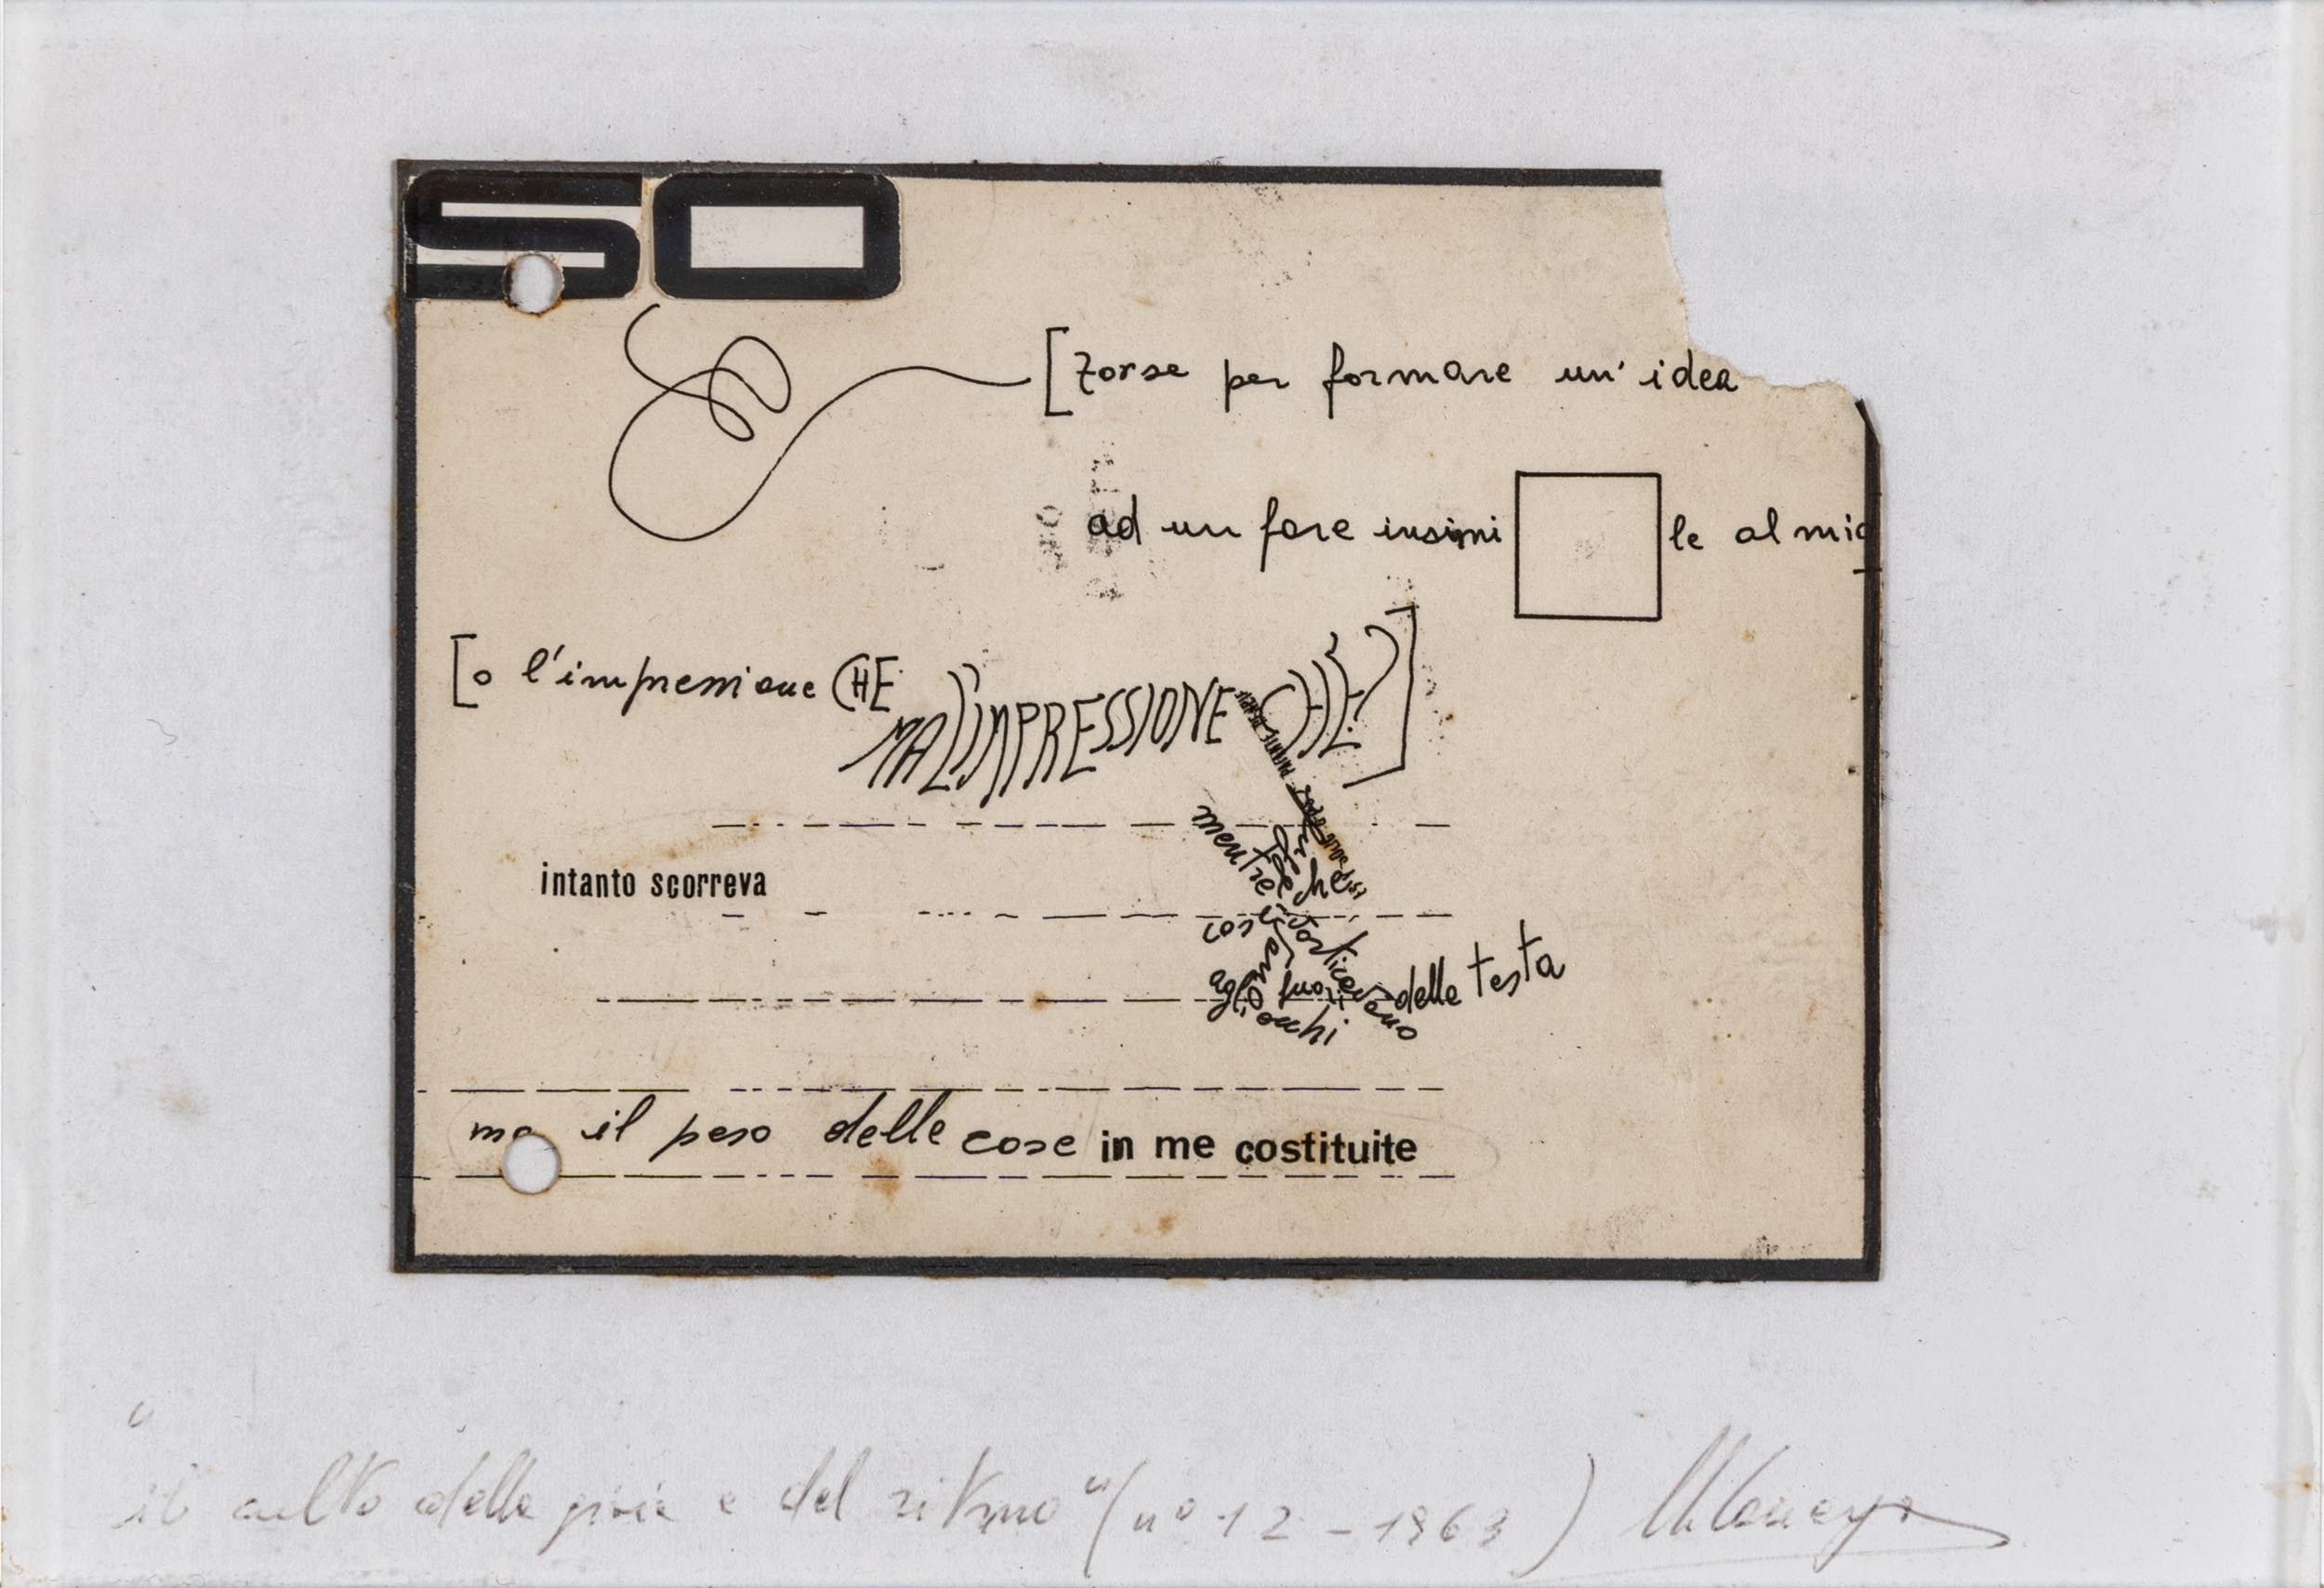 SO
[forse per formare un' idea
ad un fare insimi le al mio
[o l'impressione CHE
MA L'IMPRESSIONE CHE]
intanto scorreva
mentre
che
così
vorticavano
fuori
dalla testa
agli occhi
ma il peso delle cose in me costituite
"il culto della gioia e del ritmo" (n° 12 - 1963)